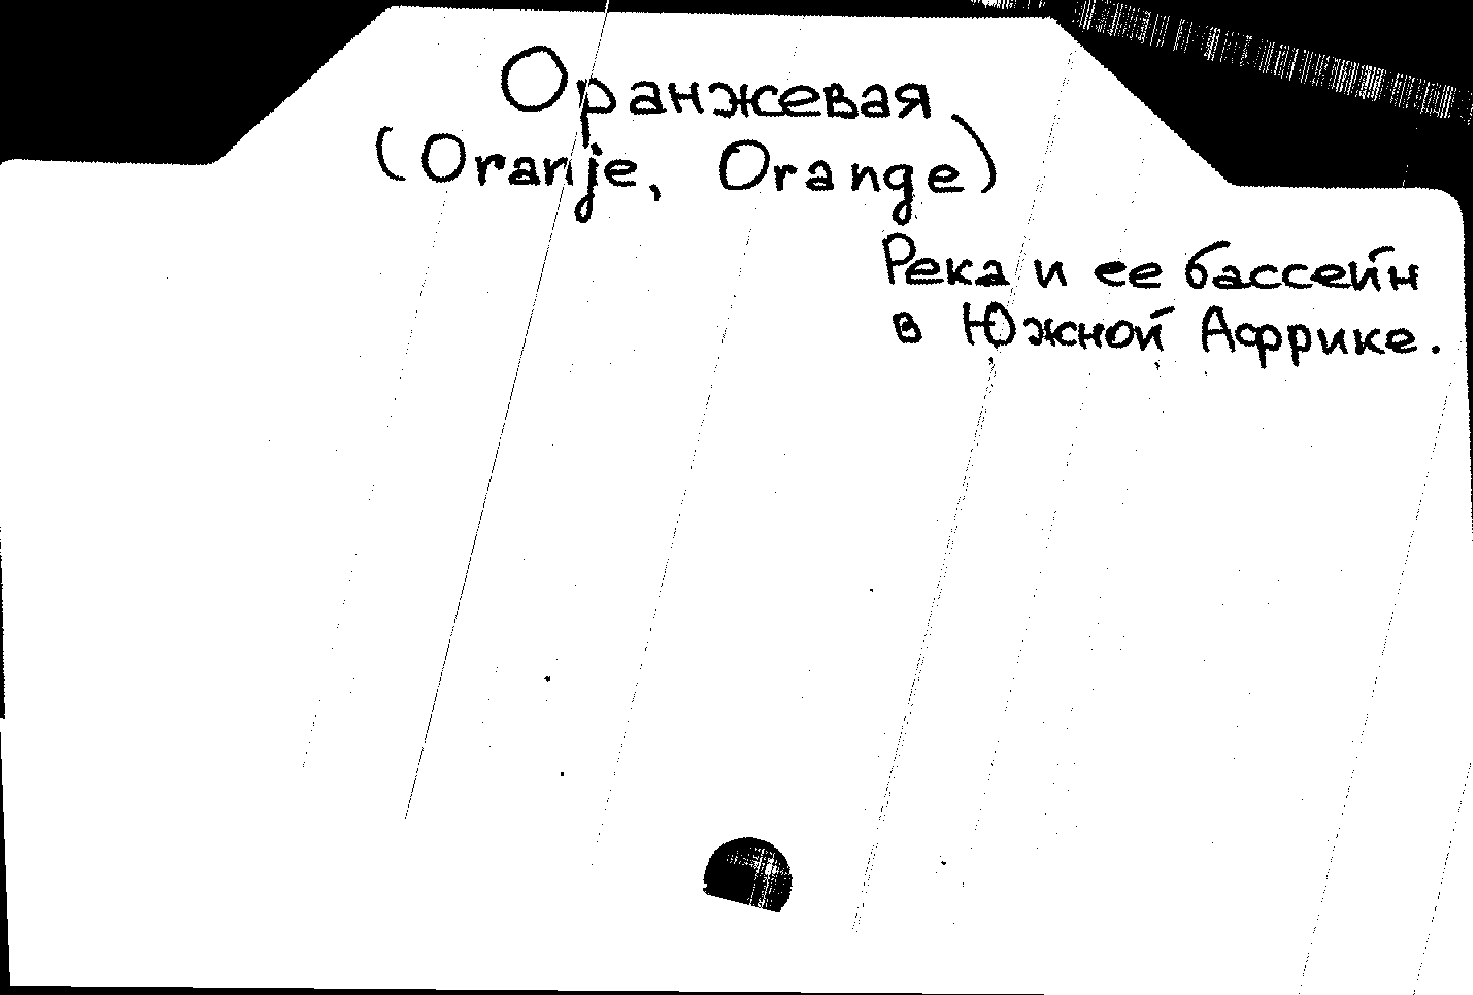 Оранжевая
(Oranje, Orange)
Река и ее бассейн
в Южной Африке.